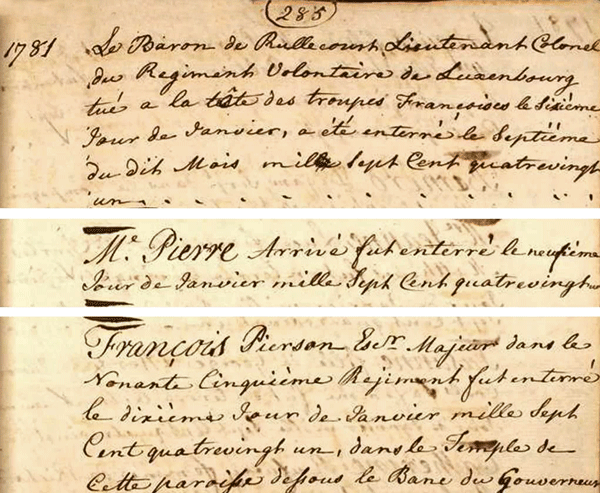 285
1781 Le Baron de Rullecourt Lieutenant Colonel
du Regiment Volontaire de Luxenbourg
tué a la tête des troupes Francoises le Sixième
Jour de Janvier, a été enterré le Septiéme
du dit Mois mille Sept Cent quatrevingt
un. . . . . . . . . .
Mr. Pierre Arrivé fut enterré le neufième
Jour de Janvier mille Sept Cent quatrevingt un
François Pierson Escr. Majeur dans le
Nonante Cinquième Rejiment fut enterré
le dixième Jour de Janvier mille Sept
Cent quatrevingt un, dans le Temple de
Cette paroisse dessous le Banc du Gouverneur